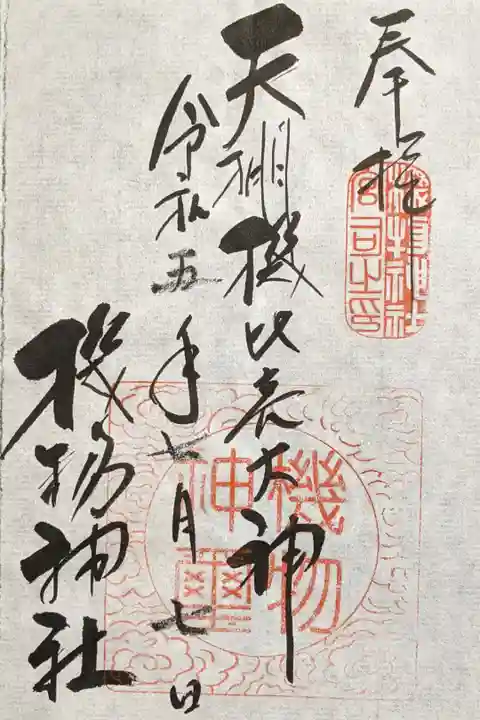 奉拝
機物神社
宮司之印
天棚機比売大神
令和五年七月七日
機物神社
機物
神璽